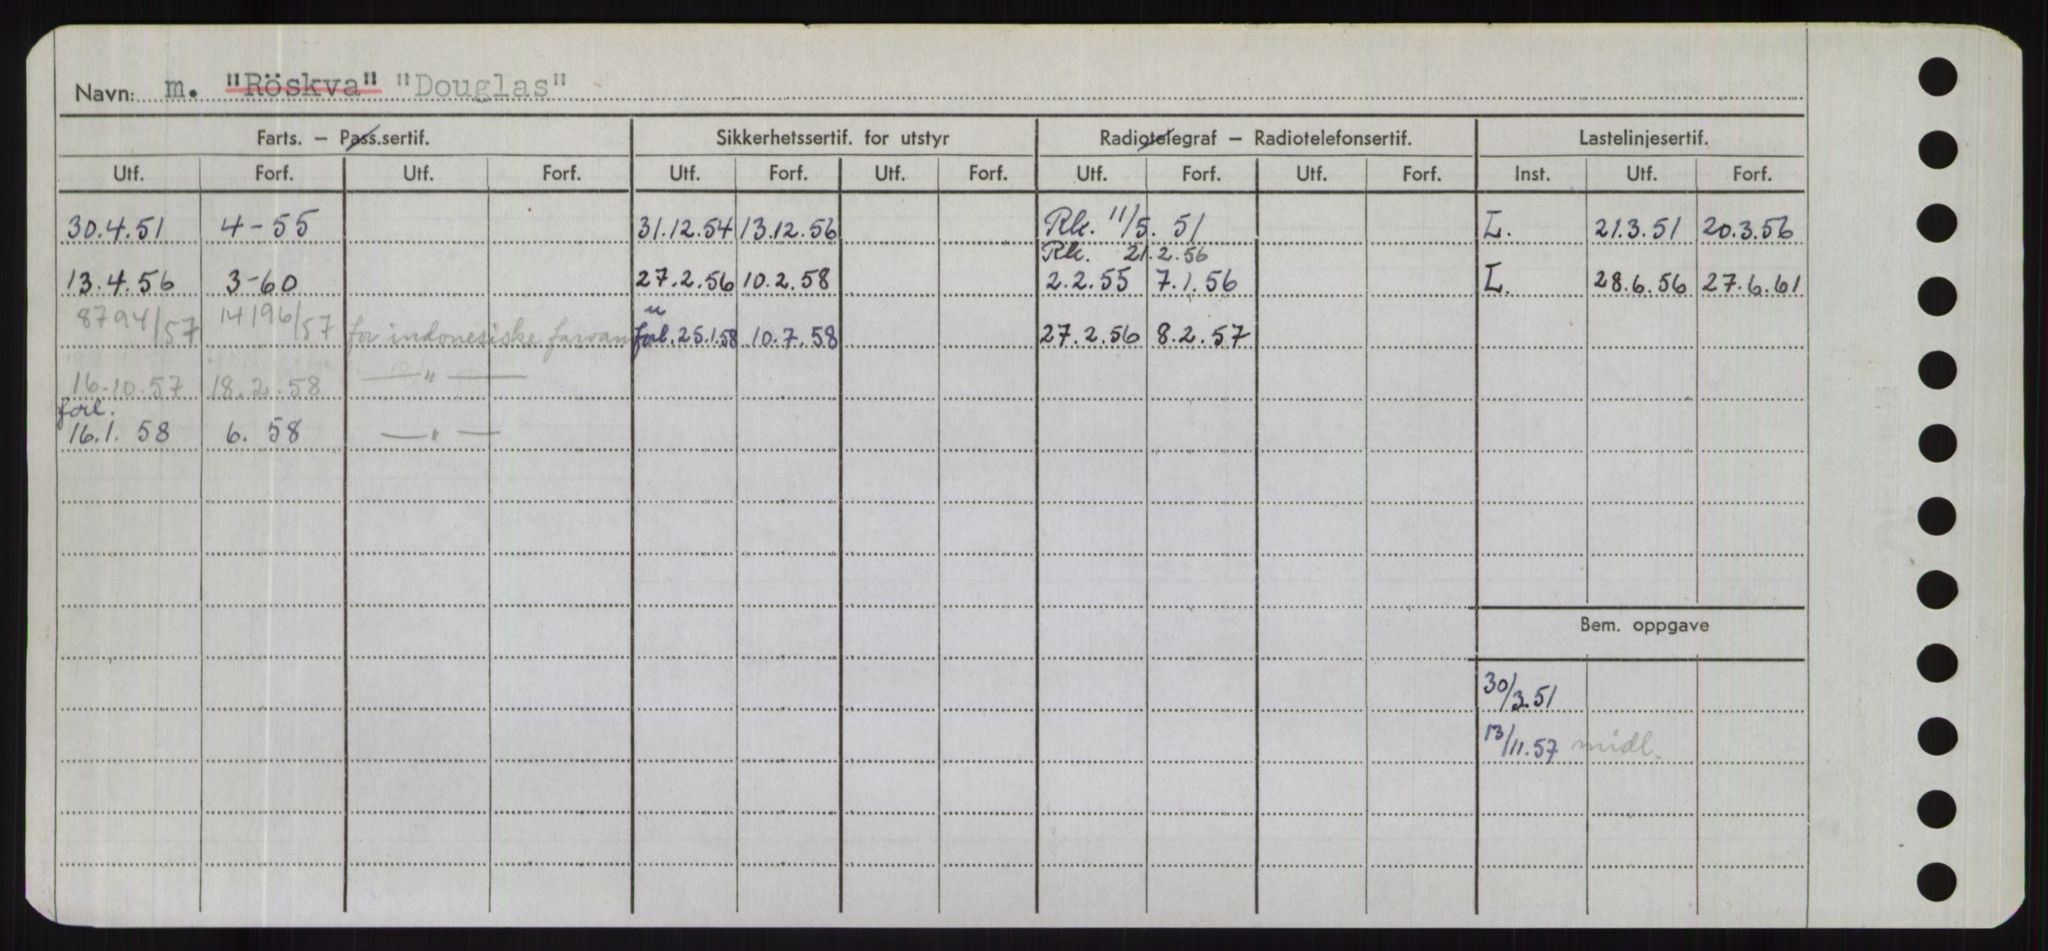 Navn: m. "Röskva" "Douglas"
Farts. – Pass.sertif. Sikkerhetssertif. for utstyr Radiotelegraf – Radiotelefonsertif. Lastelinjesertif.
Utf. Forf. Utf. Forf. Utf. Forf. Utf. Forf. Utf. Forf. Utf. Forf. Inst. Utf. Forf.
30.4.51 4-55 31.12.54 13.12.56 Rk. 11/5. 51 L. 21.3.51 20.3.56
Rk. 21.2.56
13.4.56 3-60 27.2.56 10.2.58 2.2.55 7.1.56 L. 28.6.56 27.6.61
8794/57 14196/57 for indonesiske farvann forl. 25.1.58 10.7.58 27.2.56 8.2.57
16.10.57 18.2.58 — " —
forl.
16.1. 58 6. 58 — " —
Bem. oppgave
30/3.51
13/11.57 midl.